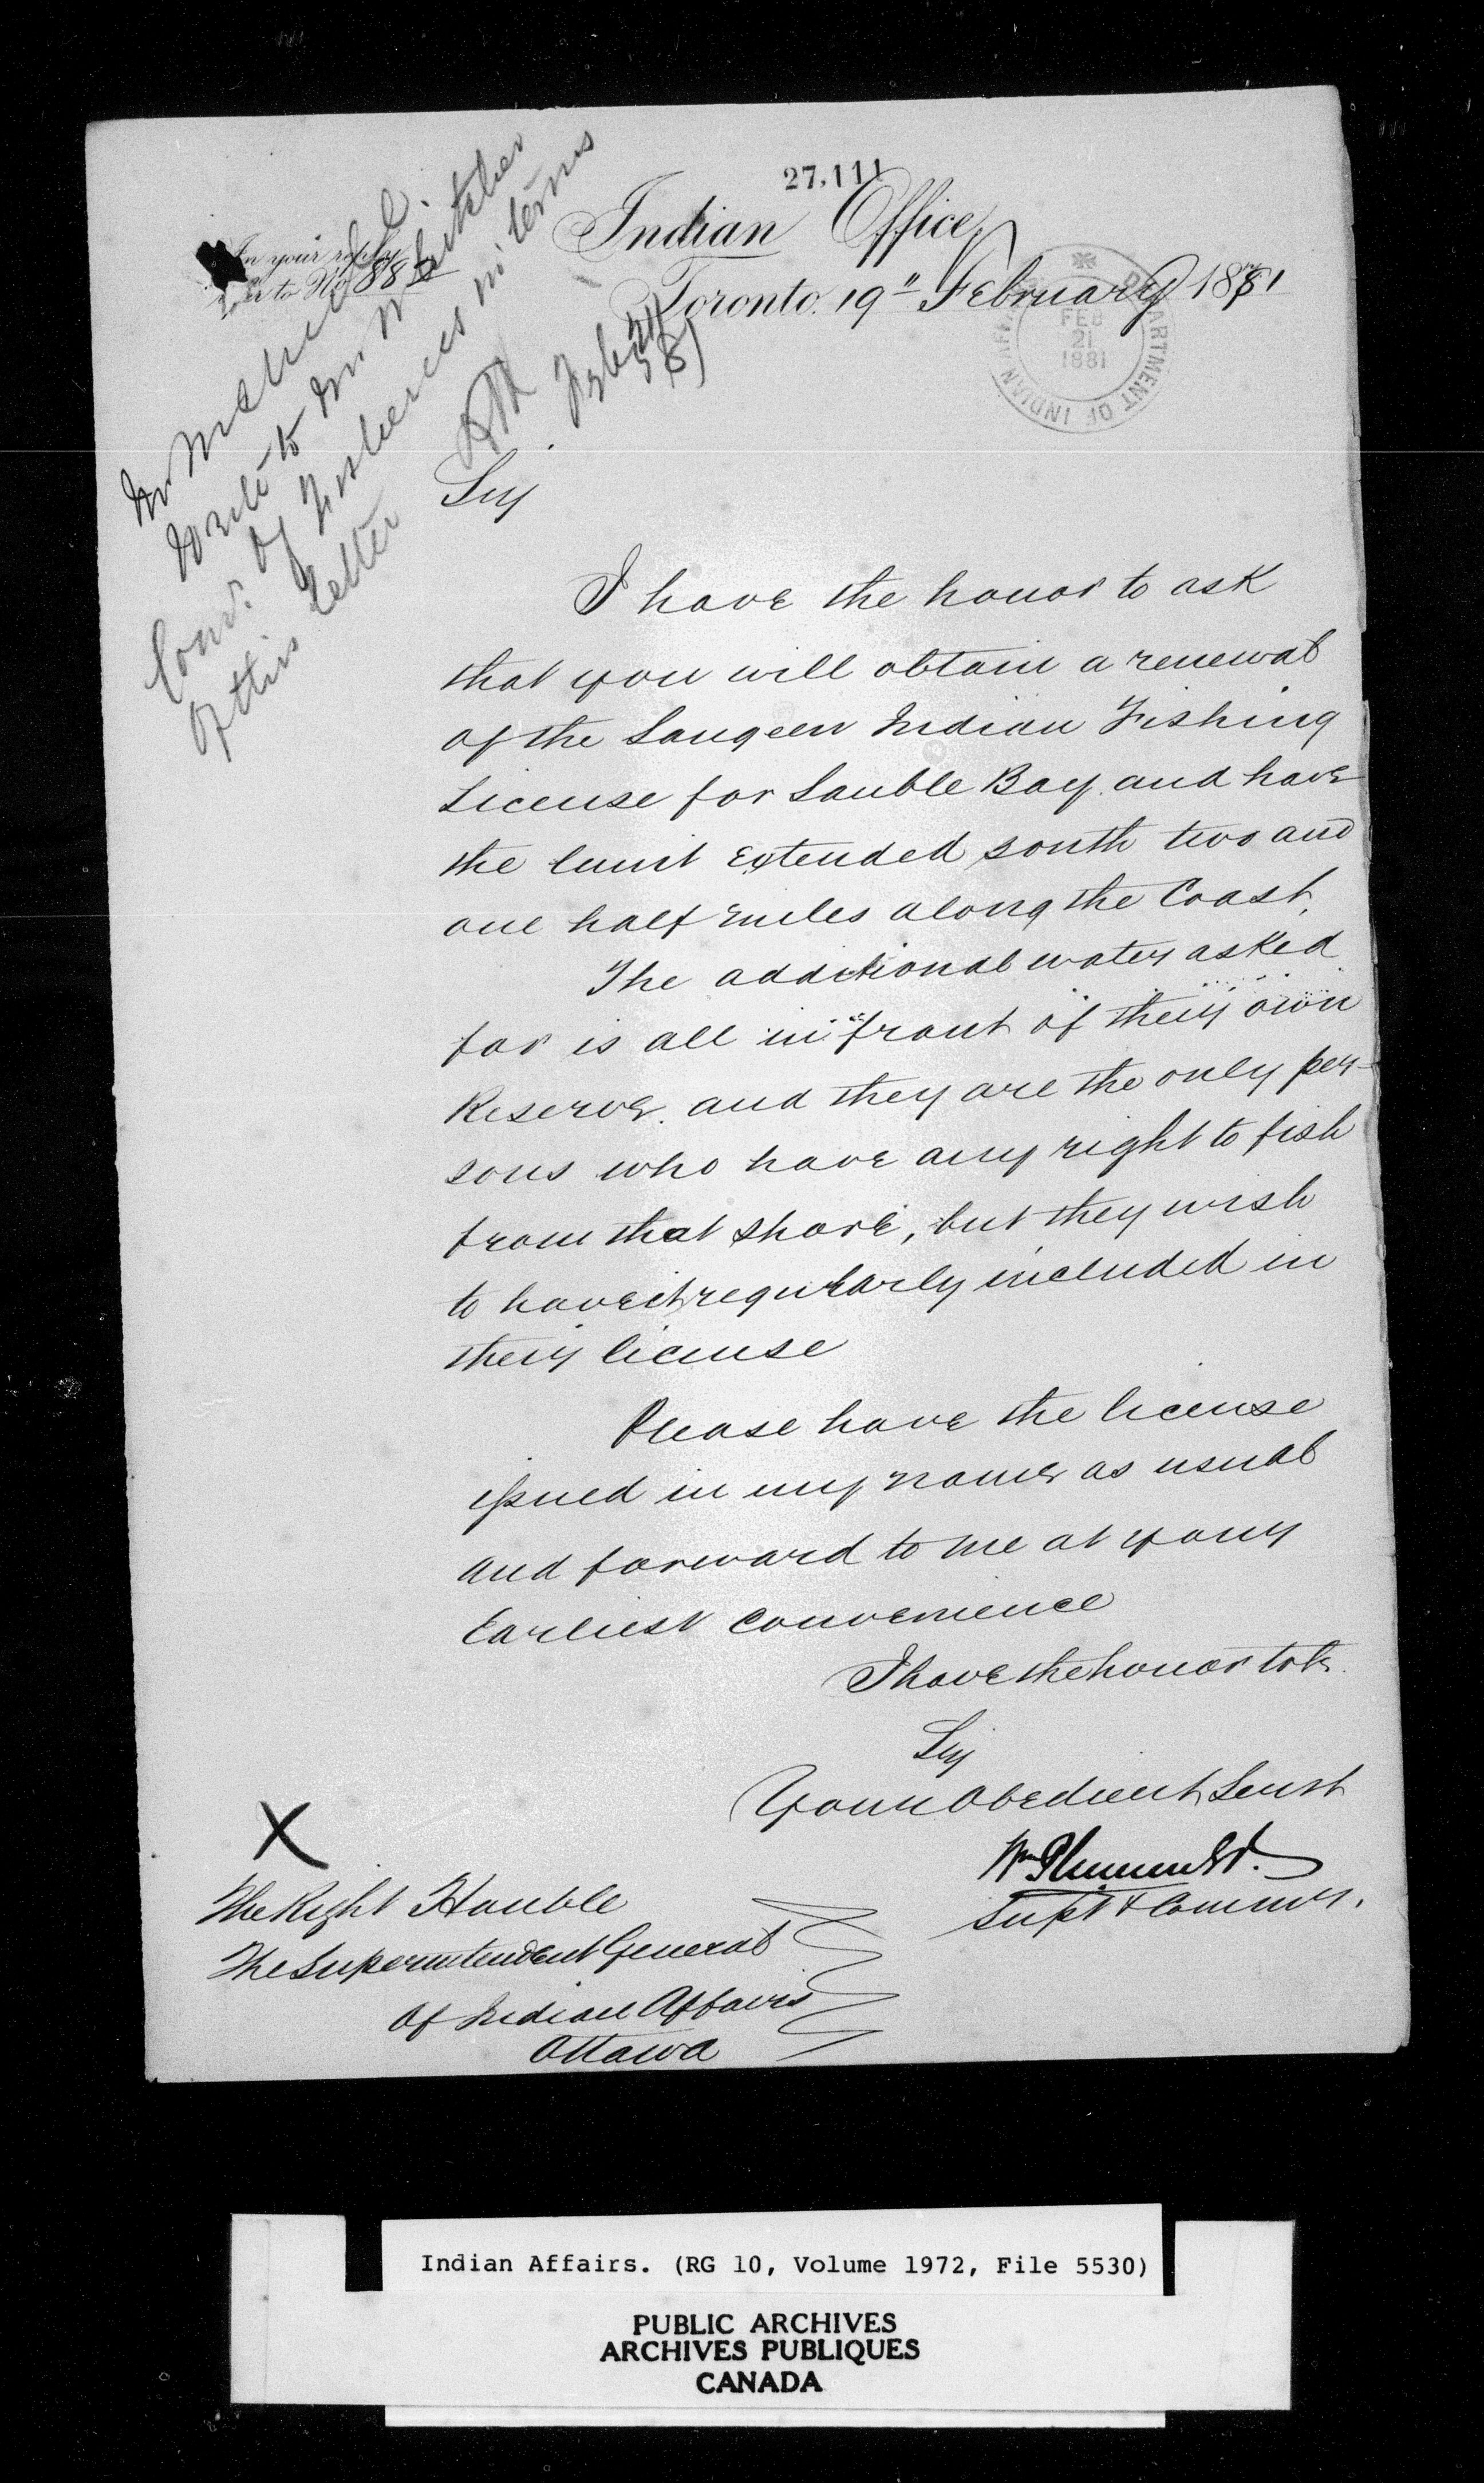 27,111
Indian Office
In your reply
refer to No 88
Toronto. 19" February 1881
DEPARTMENT OF INDIAN
FEB
21
1881
Mr
write to Mr Whitcher
Comr. of Fisheries in terms
of this letter
Feby
81
Sir
I have the honor to ask
that you will obtain a renewal
of the Saugeen Indian Fishing
License for Sauble Bay. and have
the limit Extended south two and
one half miles along the Coast.
The additional water asked
for is all in front of their own
Reserve. and they are the only per-
sons who have any right to fish
from that shore, but they wish
to have it regularly included in
their license
Please have the license
issued in my name as usual
and forward to me at your
Earliest convenience
I have the honor to be
Sir
Your obedient Servt
Wm Plummer
Supt & Commr.
X
The Right Honble
The Superintendent General
of Indian Affairs
Ottawa
Indian Affairs. (RG 10, Volume 1972, File 5530)
PUBLIC ARCHIVES
ARCHIVES PUBLIQUES
CANADA